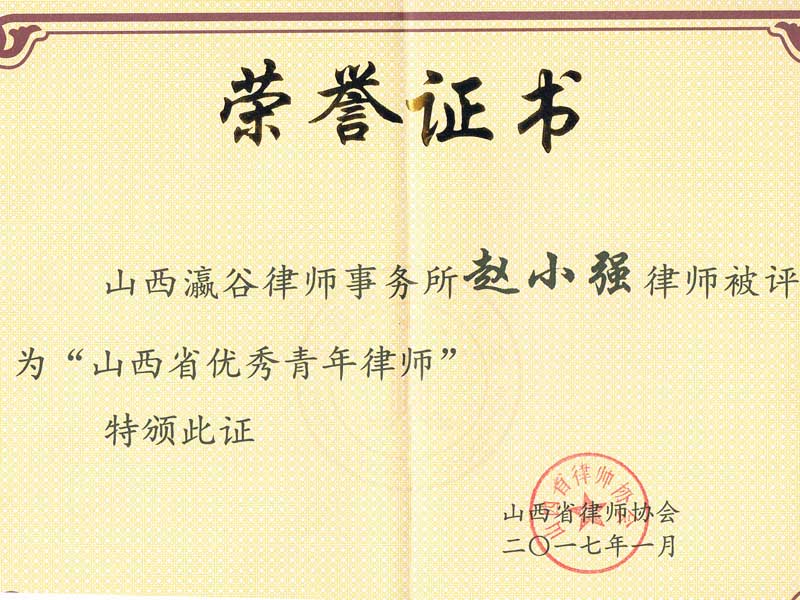 荣誉证书
山西瀛谷律师事务所赵小强律师被评
为“山西省优秀青年律师”
特颁此证
山西省律师协会
山西省律师协会
二〇一七年一月